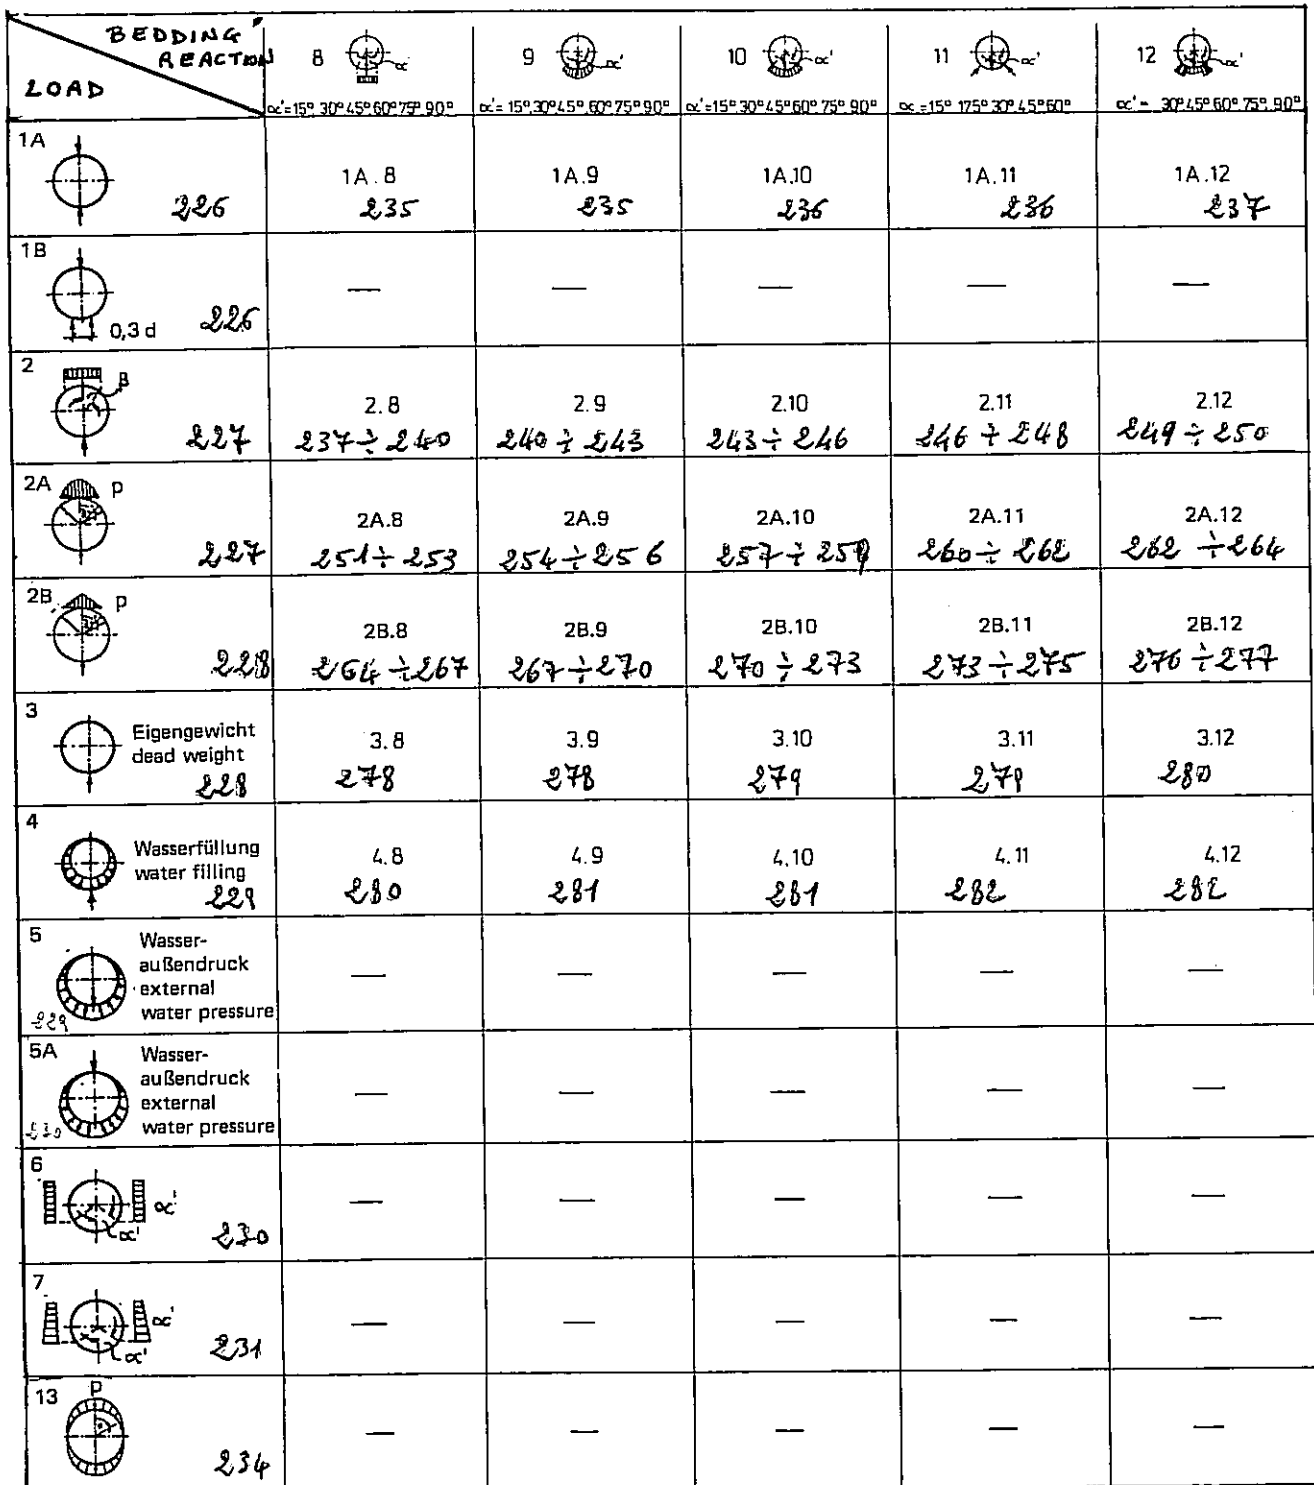 BEDDING
REACTION
LOAD
8 α
α'=15° 30° 45° 60° 75° 90°
9 α'
α'=15° 30° 45° 60° 75° 90°
10 α'
α'=15° 30° 45° 60° 75° 90°
11 α'
α=15° 175° 30° 45° 60°
12 α'
α'= 30° 45° 60° 75° 90°
1A
226
1A.8
235
1A.9
235
1A.10
236
1A.11
236
1A.12
237
1B
0,3 d
226
—
—
—
—
—
2
β
227
2.8
237 ÷ 240
2.9
240 ÷ 243
2.10
243 ÷ 246
2.11
246 ÷ 248
2.12
249 ÷ 250
2A p
227
2A.8
251 ÷ 253
2A.9
254 ÷ 256
2A.10
257 ÷ 259
2A.11
260 ÷ 262
2A.12
262 ÷ 264
2B p
228
2B.8
264 ÷ 267
2B.9
267 ÷ 270
2B.10
270 ÷ 273
2B.11
273 ÷ 275
2B.12
276 ÷ 277
3
Eigengewicht
dead weight
228
3.8
278
3.9
278
3.10
279
3.11
279
3.12
280
4
Wasserfüllung
water filling
229
4.8
280
4.9
281
4.10
281
4.11
282
4.12
282
5
Wasser-
außendruck
external
water pressure
229
—
—
—
—
—
5A
Wasser-
außendruck
external
water pressure
230
—
—
—
—
—
6
α'
α'
230
—
—
—
—
—
7
α'
α'
231
—
—
—
—
—
13
p
234
—
—
—
—
—